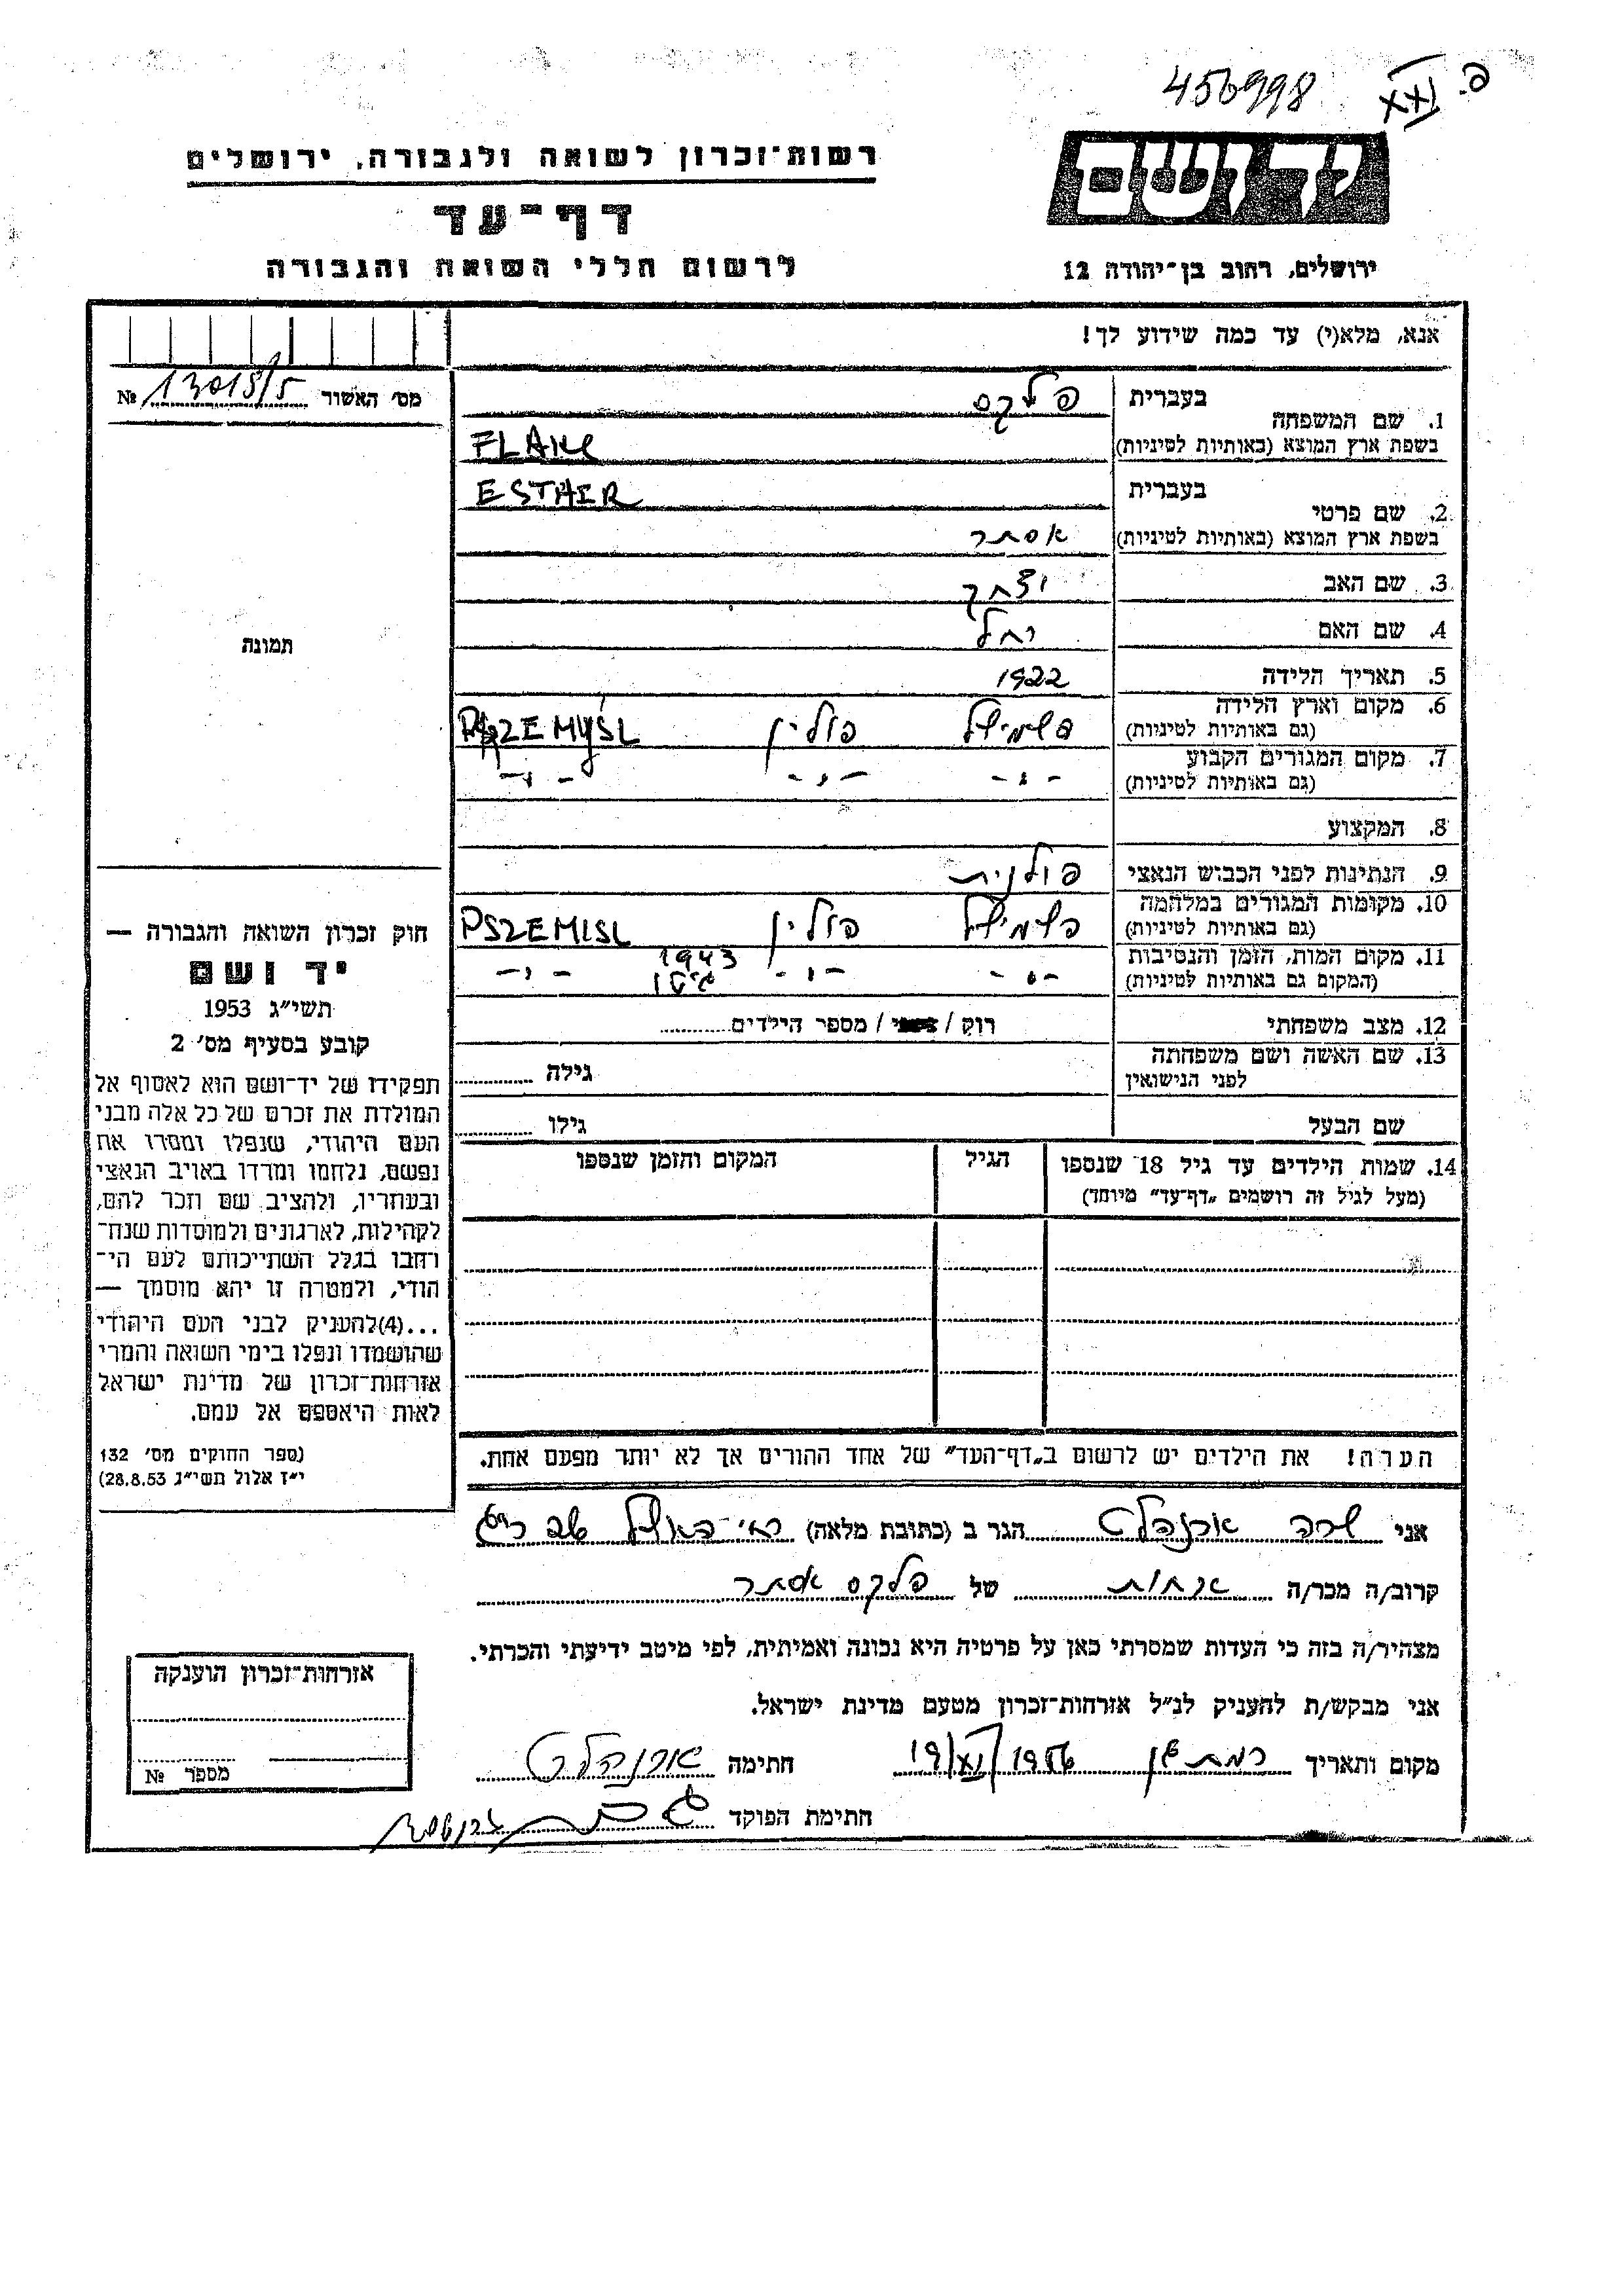 456998
פ. XXII
יד ושם
ירושלים, רחוב בן־יהודה 12
רשות־זכרון לשואה ולגבורה, ירושלים
דף־עד
לרשום חללי השואה והגבורה
אנא, מלא(י) עד כמה שידוע לך!
מס' האשור 13015/5 №
תמונה
1. שם המשפחה בעברית פלקס
בשפת ארץ המוצא (באותיות לטיניות)
2. שם פרטי בעברית ESTHER
בשפת ארץ המוצא (באותיות לטיניות) אסתר
3. שם האב יצחק
4. שם האם רחל
5. תאריך הלידה 1922
6. מקום וארץ הלידה פשמישל פולין PSZEMYSL
(גם באותיות לטיניות)
7. מקום המגורים הקבוע -״- -״- -״-
(גם באותיות לטיניות)
8. המקצוע
9. הנתינות לפני הכבוש הנאצי פולנית
10. מקומות המגורים במלחמה פשמישל פולין PSZEMISL
(גם באותיות לטיניות)
11. מקום המות, הזמן והנסיבות -״- -״- 1943 גיטו -״-
(המקום גם באותיות לטיניות)
12. מצב משפחתי רוק / / מספר הילדים
13. שם האשה ושם משפחתה גילה
לפני הנישואין
שם הבעל גילו
14. שמות הילדים עד גיל 18 שנספו הגיל המקום והזמן שנספו
(מעל לגיל זה רושמים „דף־עד" מיוחד)
הערה! את הילדים יש לרשום ב„דף־העד" של אחד ההורים אך לא יותר מפעם אחת.
חוק זכרון השואה והגבורה —
יד ושם
תשי״ג 1953
קובע בסעיף מס' 2
תפקידו של יד־ושם הוא לאסוף אל
המולדת את זכרם של כל אלה מבני
העם היהודי, שנפלו ומסרו את
נפשם, נלחמו ומרדו באויב הנאצי
ובעוזריו, ולהציב שם וזכר להם,
לקהילות, לארגונים ולמוסדות שנח־
רבו בגלל השתייכותם לעם הי־
הודי, ולמטרה זו יהא מוסמך —
...(4)להעניק לבני העם היהודי
שהושמדו ונפלו בימי השואה והמרי
אזרחות־זכרון של מדינת ישראל
לאות היאספם אל עמם.
(ספר החוקים מס' 132
י״ז אלול תשי״ג 28.8.53)
אני שרה הגר ב (כתובת מלאה)
קרוב/ה מכר/ה אחות של פלקס אסתר
מצהיר/ה בזה כי העדות שמסרתי כאן על פרטיה היא נכונה ואמיתית, לפי מיטב ידיעתי והכרתי.
אני מבקש/ת להעניק לנ״ל אזרחות־זכרון מטעם מדינת ישראל.
מקום ותאריך רמת גן 19/XI/1956 חתימה
חתימת הפוקד
אזרחות־זכרון הוענקה
מספר №